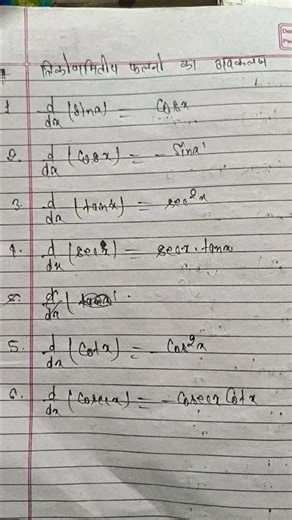 त्रिकोणमितीय फलनो का अवकलन
1 d/dx (sinx) = cosx
2. d/dx (cosx) = - sinx
3. d/dx (tanx) = sec²x
4. d/dx (secx) = secx . tanx
5. d/dx (cotx) = - cos²x
6. d/dx (cosecx) = - cosecx cotx